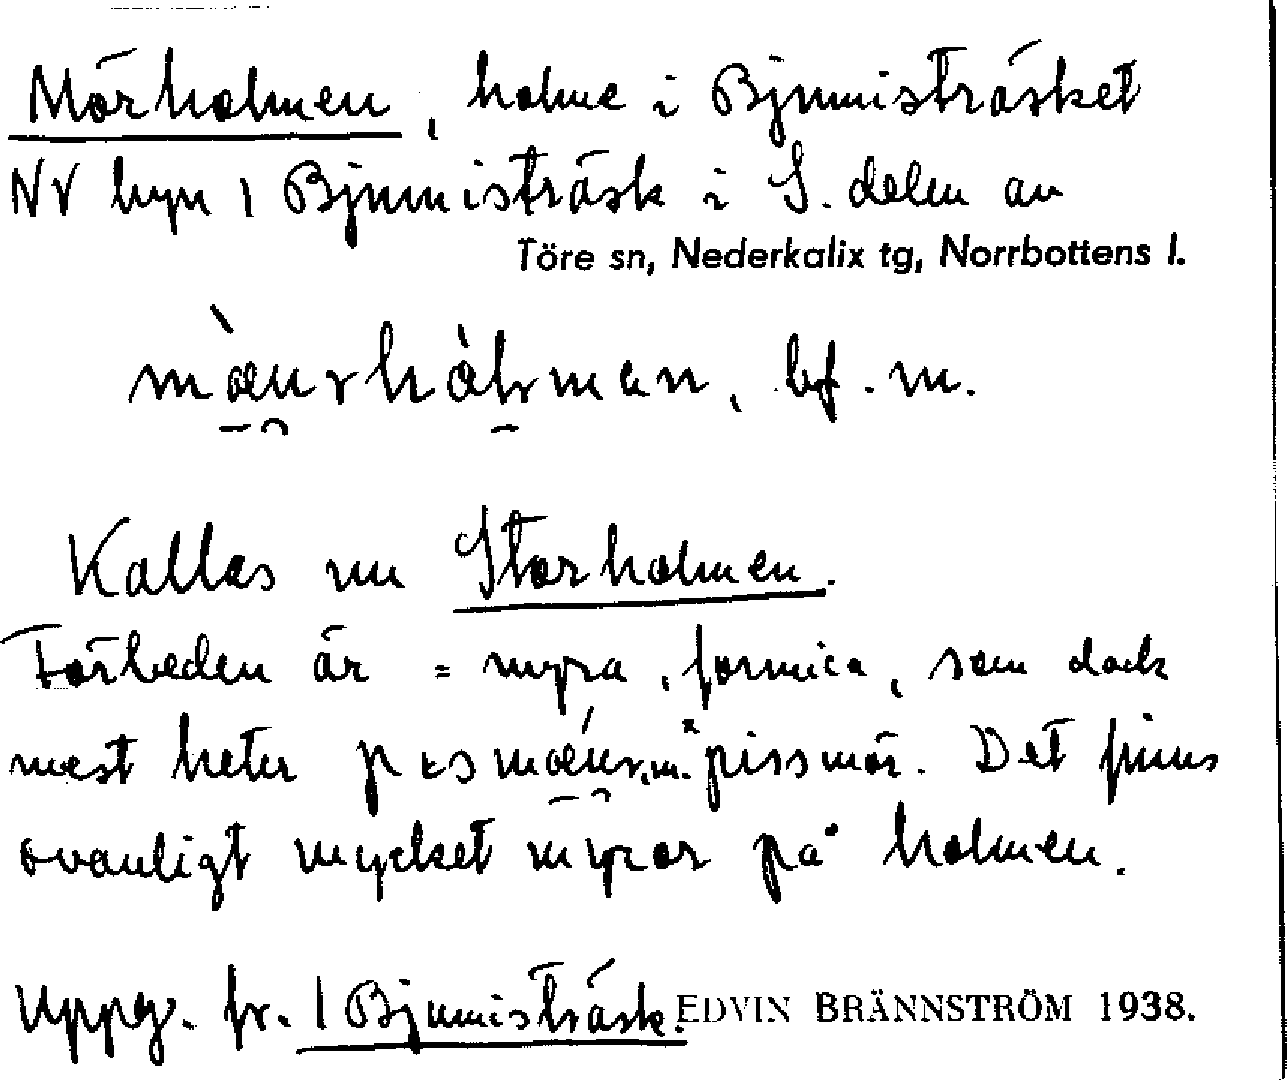 Mörholmen, holme i Bjumisträsket
NV byn 1 Bjumisträsk i S. delen av
Töre sn, Nederkalix tg, Norrbottens l.
bf. m.
Kallas nu Storholmen.
Förleden är = myra, formica, som dock
mest heter m. pissmör. Det finns
ovanligt mycket myror på holmen.
Uppg. fr. 1 Bjumisträsk. EDVIN BRÄNNSTRÖM 1938.